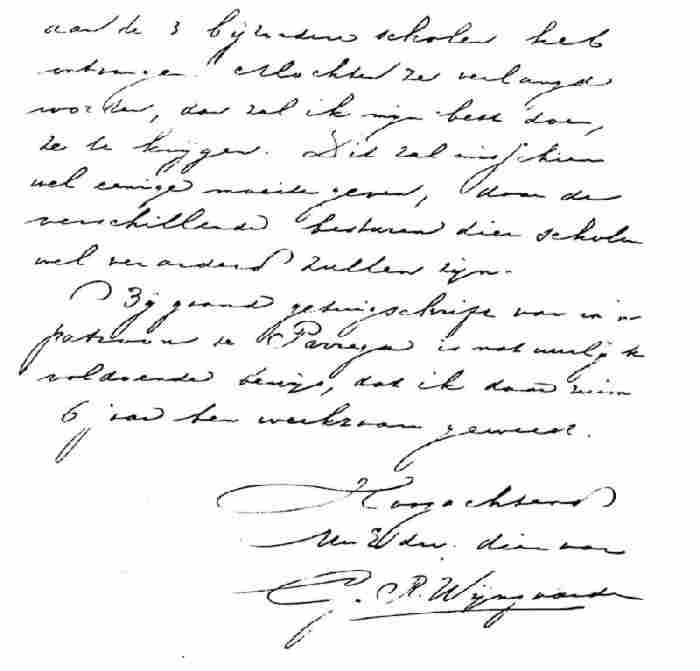 aan de 3 bijzondere scholen heb
ontvangen. Mochten ze verlangd
worden, dan zal ik mijn best doen,
ze te krijgen. Dit zal misschien
wel eenige moeite geven, daar de
verschillende besturen dier scholen
wel veranderd zullen zijn.
Bijgaand getuigschrift van mijn
patroon te Parrega is natuurlijk
voldoende bewijs, dat ik daar ruim
6 jaar ben werkzaam geweest.
Hoogachtend
Uw Edw. dienaar
G. R. Wijngaarden